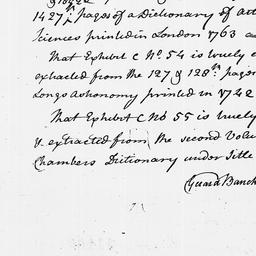 1427th pages of a Dictionary of Art
Sciences printed in London 1763 a
That Exhibit C No. 54 is truely e
extracted from the 127 & 128th pages
Longs Astronomy printed in 1742
That Exhibit C No 55 is truely
& extracted from the second Volu
Chambers Dictionary under Title
Banck